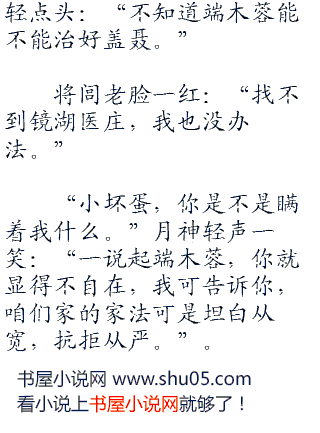 轻点头：“不知道端木蓉能
不能治好盖聂。”
将闾老脸一红：“找不
到镜湖医庄，我也没办
法。”
“小坏蛋，你是不是瞒
着我什么。”月神轻声一
笑：“一说起端木蓉，你就
显得不自在，我可告诉你，
咱们家的家法可是坦白从
宽，抗拒从严。”。
书屋小说网 www.shu05.com
看小说上书屋小说网就够了！